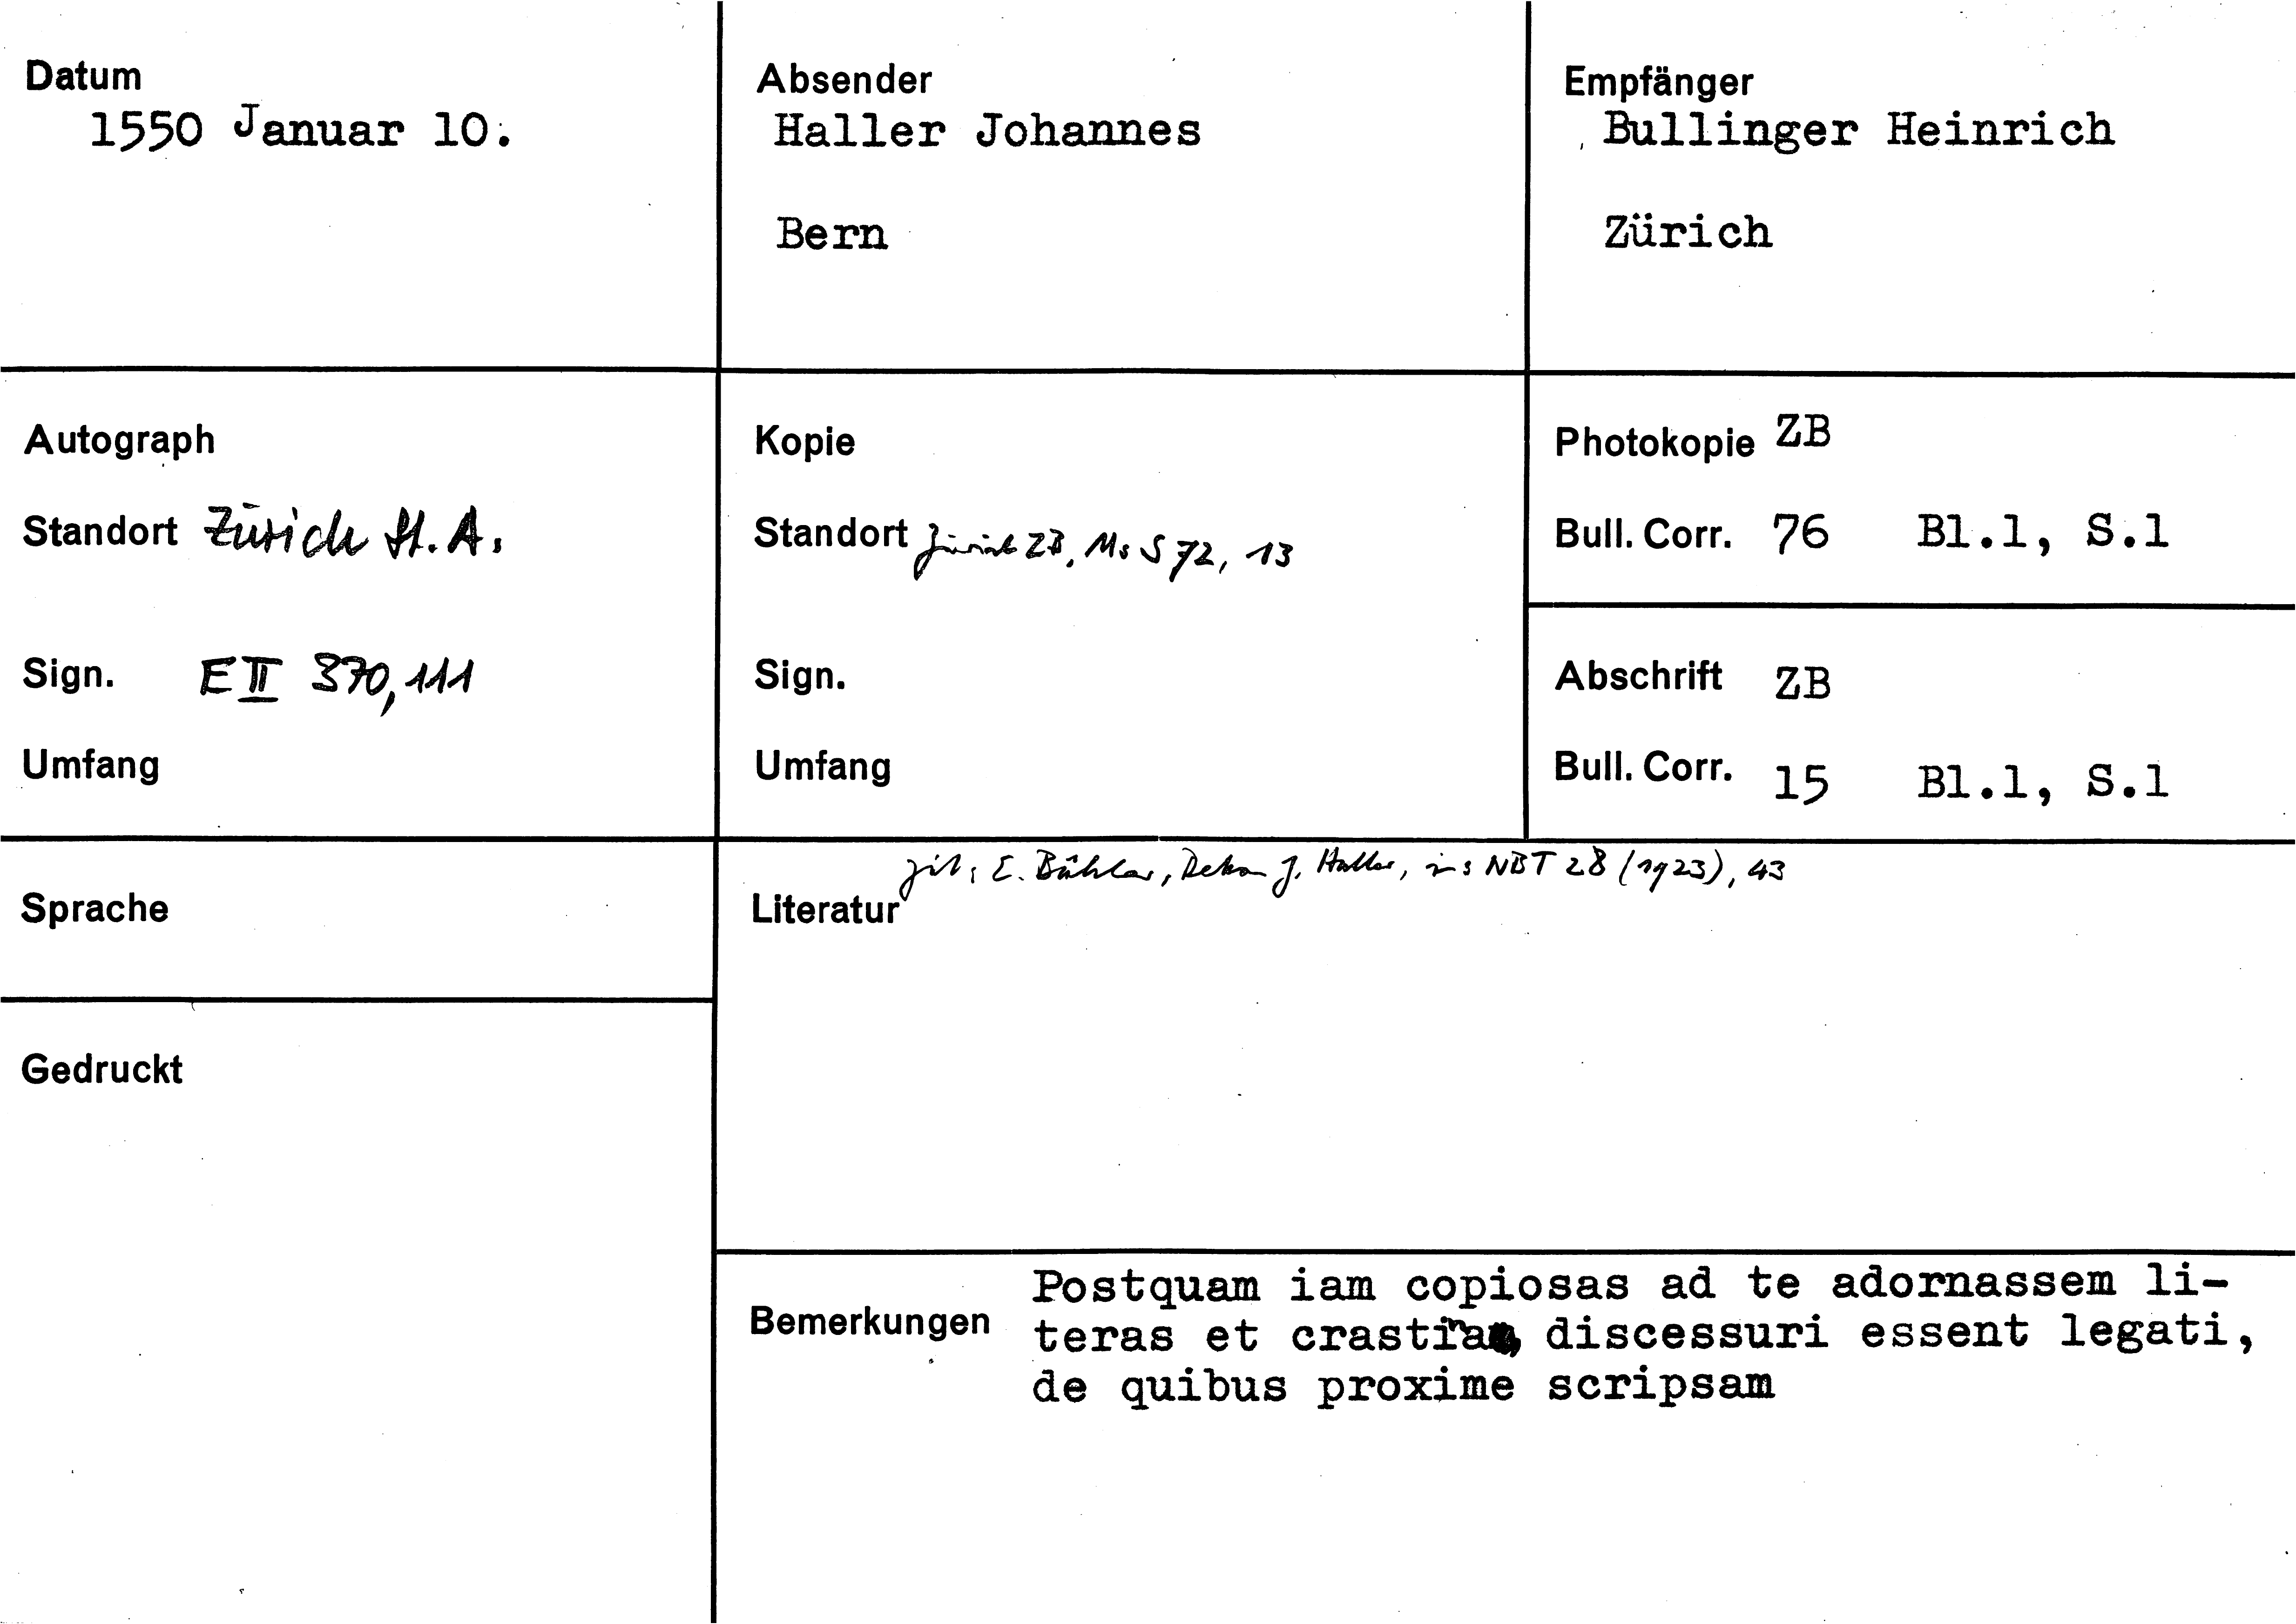 Datum
1550 Januar 10.
Absender
Haller Johannes
Bern
Empfänger
Bullinger Heinrich
Zürich
Autograph
Standort Zürich St. A.
Sign. E II 370, 111
Umfang
Kopie
Standort Zürich ZB, Ms S 72, 13
Sign.
Umfang
Photokopie ZB
Bull. Corr. 76 Bl.1, S.1
Abschrift ZB
Bull. Corr. 15 Bl.1, S.1
Sprache
Gedruckt
zit: E. Bähler, Dekan J. Haller, in: NBT 28 (1923), 43
Literatur
Bemerkungen
Postquam iam copiosas ad te adornassem li-
teras et discessuri essent legati,
de quibus proxime scripsam